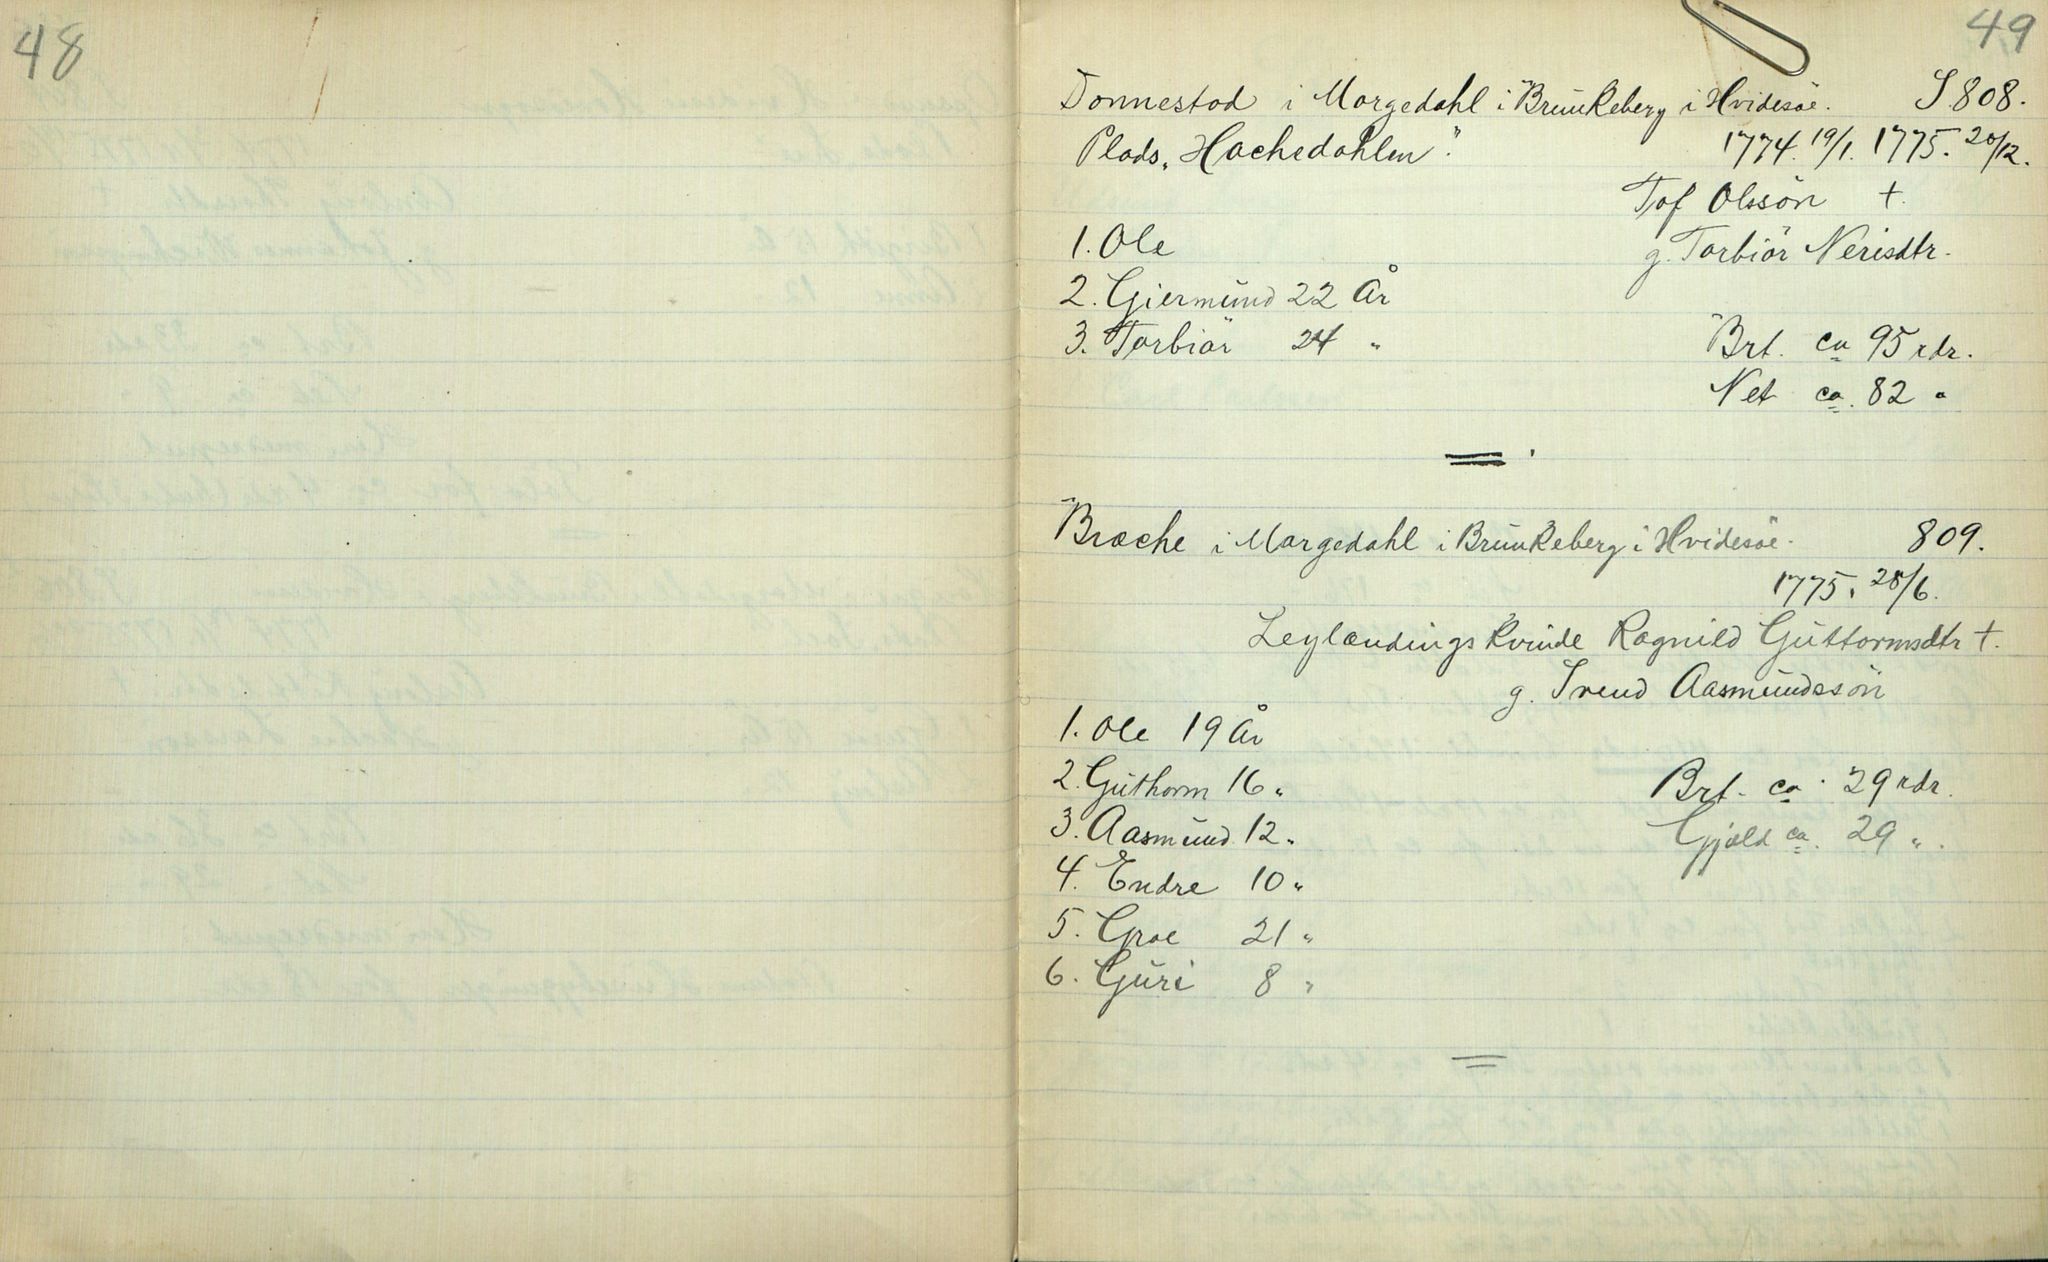 48
49
Donnestad i Morgedahl i Brunkeberg i Hvidesöe. S. 808.
Plads "Hachedahlen". 1774. 19/1. 1775. 20/12.
Tof Olssön †.
1. Ole g. Torbiör Nerisdtr.
2. Giermund 22 År
3. Torbiör 24 " Brt. ca 95 rdr.
Net ca. 82 "
Bræche i Morgedahl i Brunkeberg i Hvidesöe. 809.
1775. 28/6.
Leylændingskvinde Ragnild Guttormsdtr †.
g. Svend Aasmundssön
1. Ole 19 År
2. Guthorm 16 " Brt. ca. 29 rdr.
3. Aasmund 12 " Gjæld ca. 29 ".
4. Endre 10 "
5. Groe 21 "
6. Guri 8 "